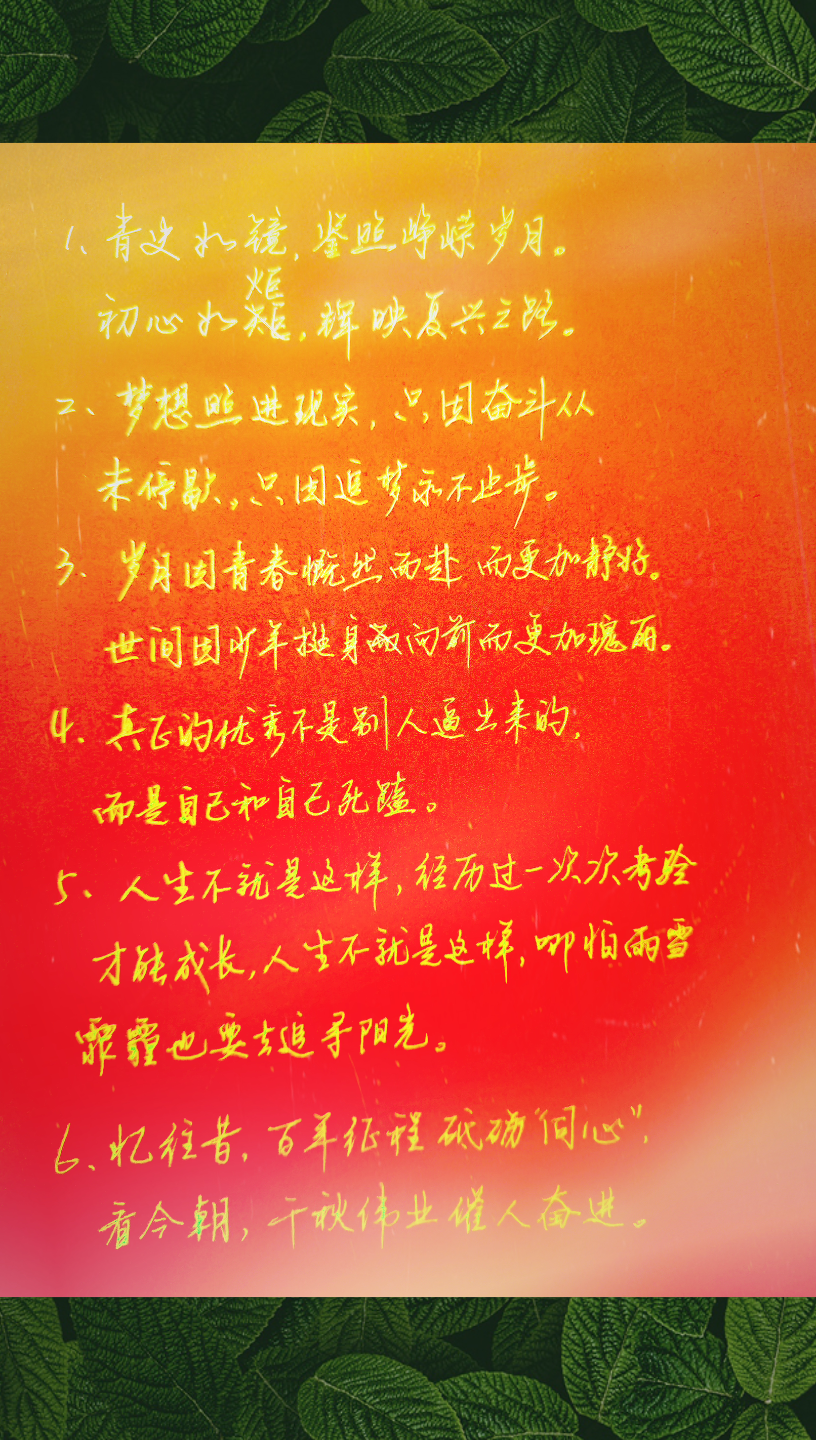 1、青史如镜，鉴照峥嵘岁月。
炬
初心如炬，辉映复兴之路。
2、梦想照进现实，只因奋斗从
未停歇，只因追梦永不止步。
3、岁月因青春慨然而赴而更加静好。
世间因少年挺身向前而更加瑰丽。
4、真正的优秀不是别人逼出来的，
而是自己和自己死磕。
5、人生不就是这样，经历过一次次考验
才能成长，人生不就是这样，哪怕雨雪
霏霾也要去追寻阳光。
6、忆往昔，百年征程砥砺“问心”，
看今朝，千秋伟业催人奋进。